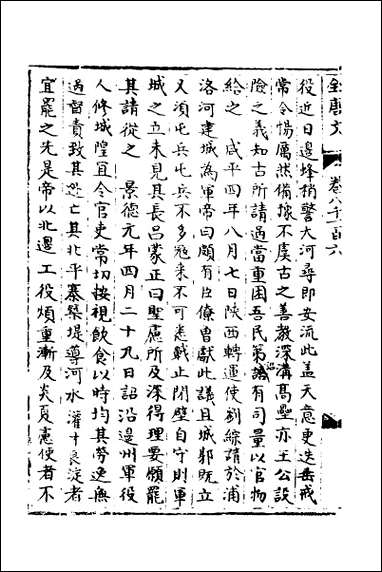 全唐文　卷八千一百六
役近日邊烽稍警大河尋即安流此盖天意更迭垂戒
常令惕厲然備據不虞古之善教深溝高壘亦王公設
險之義知古所請過當重困吾民第詔有司量以官物
給之　咸平四年八月七日陝西轉運使劉綜請於浦
洛河建城為軍帝曰頗有臣僚曾獻此議且城郭既立
又須屯兵屯兵不多寇來不可悉戰止閉壁自守則軍
城之立未見其長呂蒙正曰聖慮所及深得理要願罷
其請從之　景德元年四月二十九日詔沿邊州軍役
人修城隍宜令官吏常切按視飲食以時均其勞逸無
過督責致其逃亡其北平寨築堤導河水灌十良淀者
宜罷之先是帝以北邊工役煩重漸及炎夏憲使者不